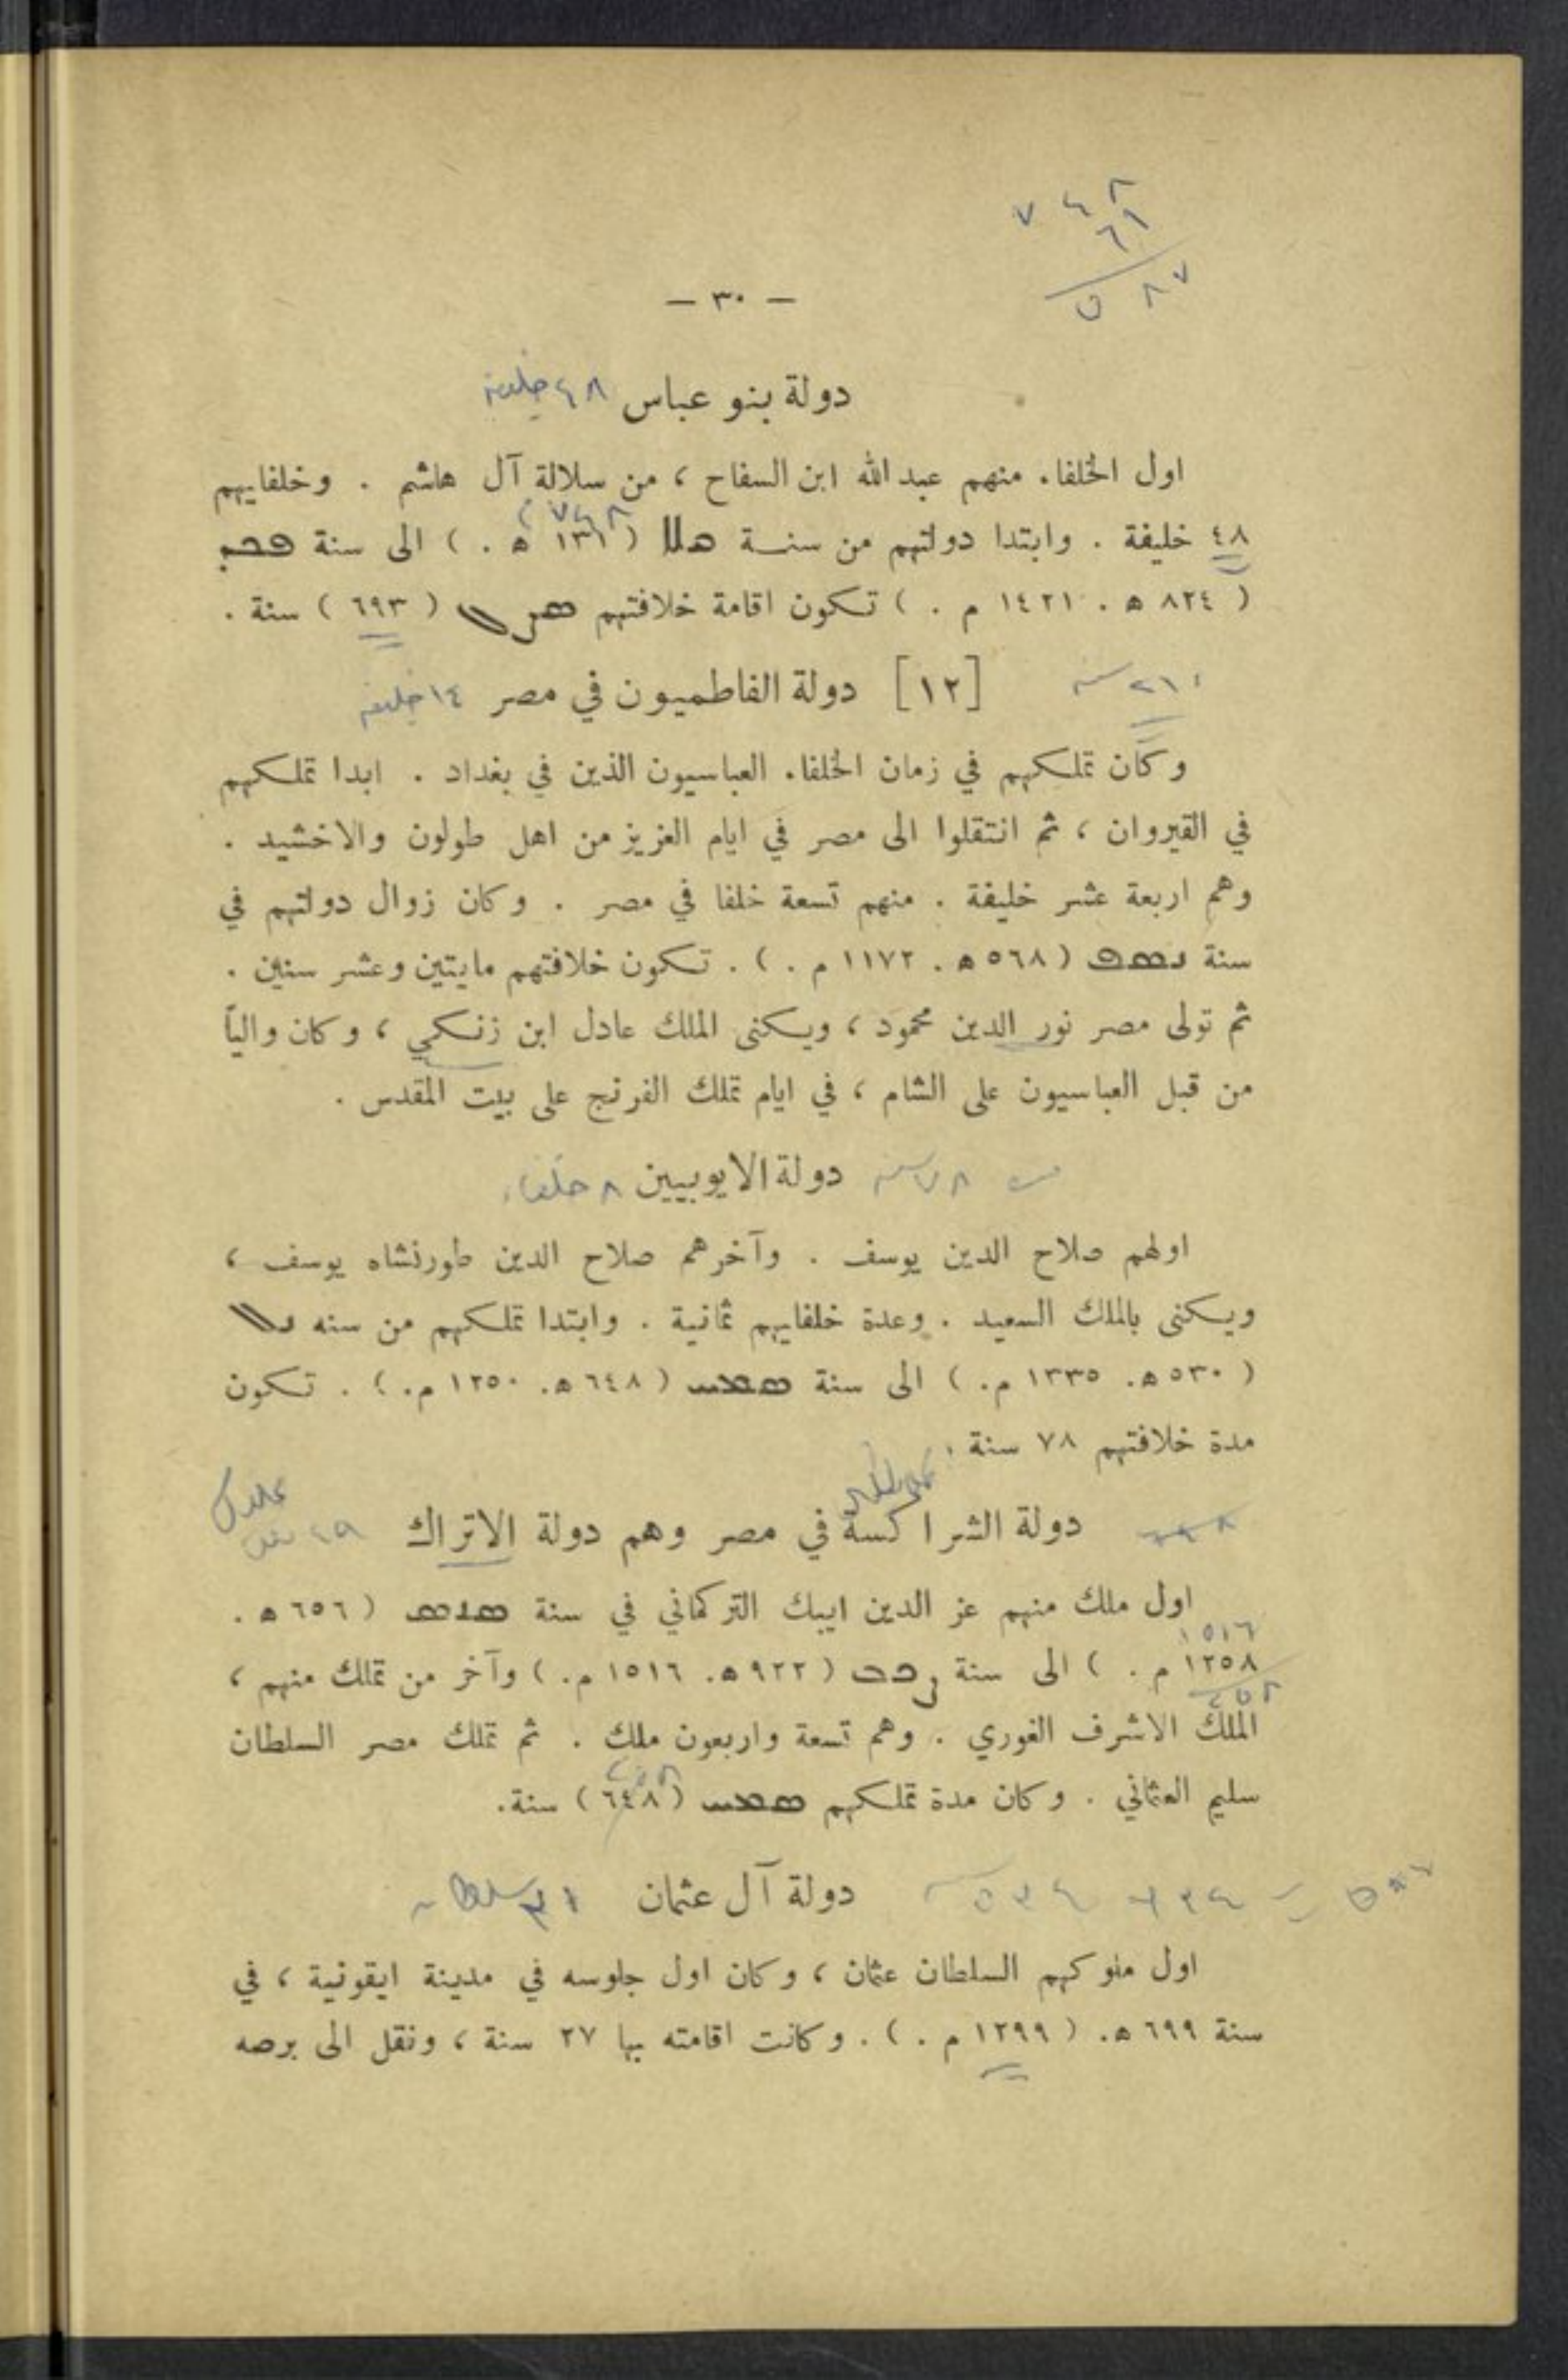 ٧٤٨
٦١
٨٧
— ٣٠ —
دولة بنو عباس ٤٨ خليفة
اول الخلفاء منهم عبد الله ابن السفاح ، من سلالة آل هاشم . وخلفايهم
٤٨ خليفة . وابتدا دولتهم من سنة ( ١٣١ ه . ) الى سنة
( ٨٢٤ ه . ١٤٢١ م . ) تكون اقامة خلافتهم ( ٦٩٣ ) سنة .
[١٢] دولة الفاطميون في مصر ١٤ خليفة
وكان تملكهم في زمان الخلفاء العباسيون الذين في بغداد . ابدا تملكهم
في القيروان ، ثم انتقلوا الى مصر في ايام العزيز من اهل طولون والاخشيد .
وهم اربعة عشر خليفة . منهم تسعة خلفا في مصر . وكان زوال دولتهم في
سنة ( ٥٦٨ ه . ١١٧٢ م . ) . تكون خلافتهم مايتين وعشر سنين .
ثم تولى مصر نور الدين محمود ، ويكنى الملك عادل ابن زنكي ، وكان والياً
من قبل العباسيون على الشام ، في ايام تملك الفرنج على بيت المقدس .
٧٨ سنة دولة الايوبيين ٨ خلفاء
اولهم صلاح الدين يوسف . وآخرهم صلاح الدين طورنشاه يوسف ،
ويكنى بالملك السعيد . وعدة خلفايهم ثمانية . وابتدا تملكهم من سنه
( ٥٣٠ ه . ١٣٣٥ م . ) الى سنة ܗܡܚ ( ٦٤٨ ه . ١٢٥٠ م . ) . تكون
مدة خلافتهم ٧٨ سنة .
دولة الشراكسة في مصر وهم دولة الاتراك ٤٩
اول ملك منهم عز الدين ايبك التركماني في سنة ( ٦٥٦ ه .
١٥١٦
١٢٥٨ م . ) الى سنة ( ٩٢٢ ه . ١٥١٦ م . ) وآخر من تملك منهم ،
٢٥٨
الملك الاشرف الغوري . وهم تسعة واربعون ملك . ثم تملك مصر السلطان
سليم العثماني . وكان مدة تملكهم ( ٦٤٨ ) سنة .
دولة آل عثمان ٣١ سلطان
اول ملوكهم السلطان عثمان ، وكان اول جلوسه في مدينة ايقونية ، في
سنة ٦٩٩ ه . ( ١٢٩٩ م . ) . وكانت اقامته بها ٢٧ سنة ، ونقل الى برصه